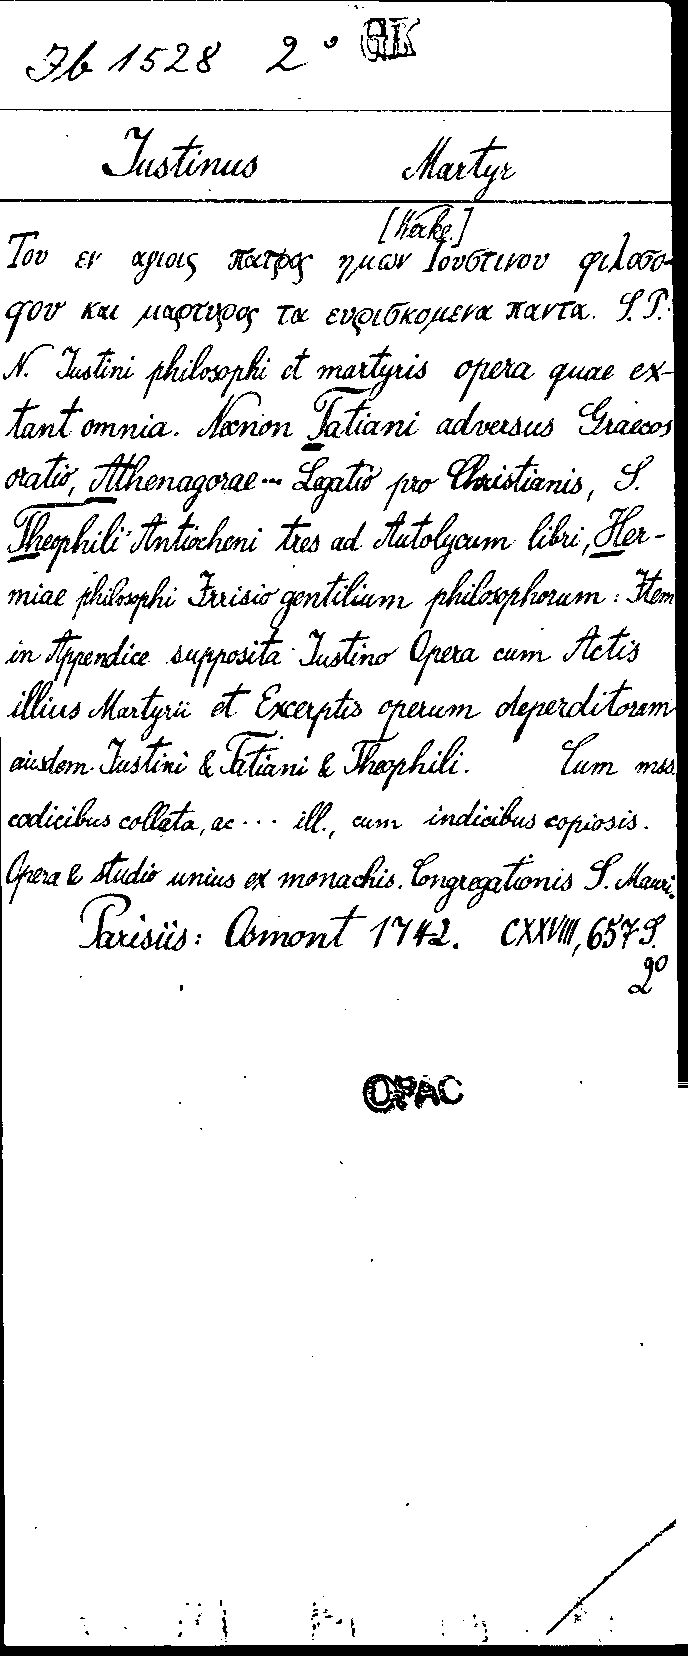 Ib 1528 2° GK
Iustinus Martyr
[Werke.]
Του εν αγιοις πατρος ημων Ιουστινου φιλοσο-
φου και μαρτυρος τα ευρισκομενα παντα. S. P.
N. Iustini philosophi et martyris opera quae ex-
tant omnia. Necnon Tatiani adversus Graecos
oratio, Athenagorae ... Legatio pro Christianis, S.
Theophili Antiocheni tres ad Autolycum libri, Her-
miae philosophi Irrisio gentilium philosophorum: Item
in Appendice supposita Iustino Opera cum Actis
illius Martyrii et Excerptis operum deperditorum
eiusdem Iustini & Tatiani & Theophili. Cum mss
codicibus collata, ac ... ill., cum indicibus copiosis.
Opera & studio unius ex monachis Congregationis S. Mauri.
Parisiis: Osmont 1742. CXXVIII, 657 S.
2°
OPAC